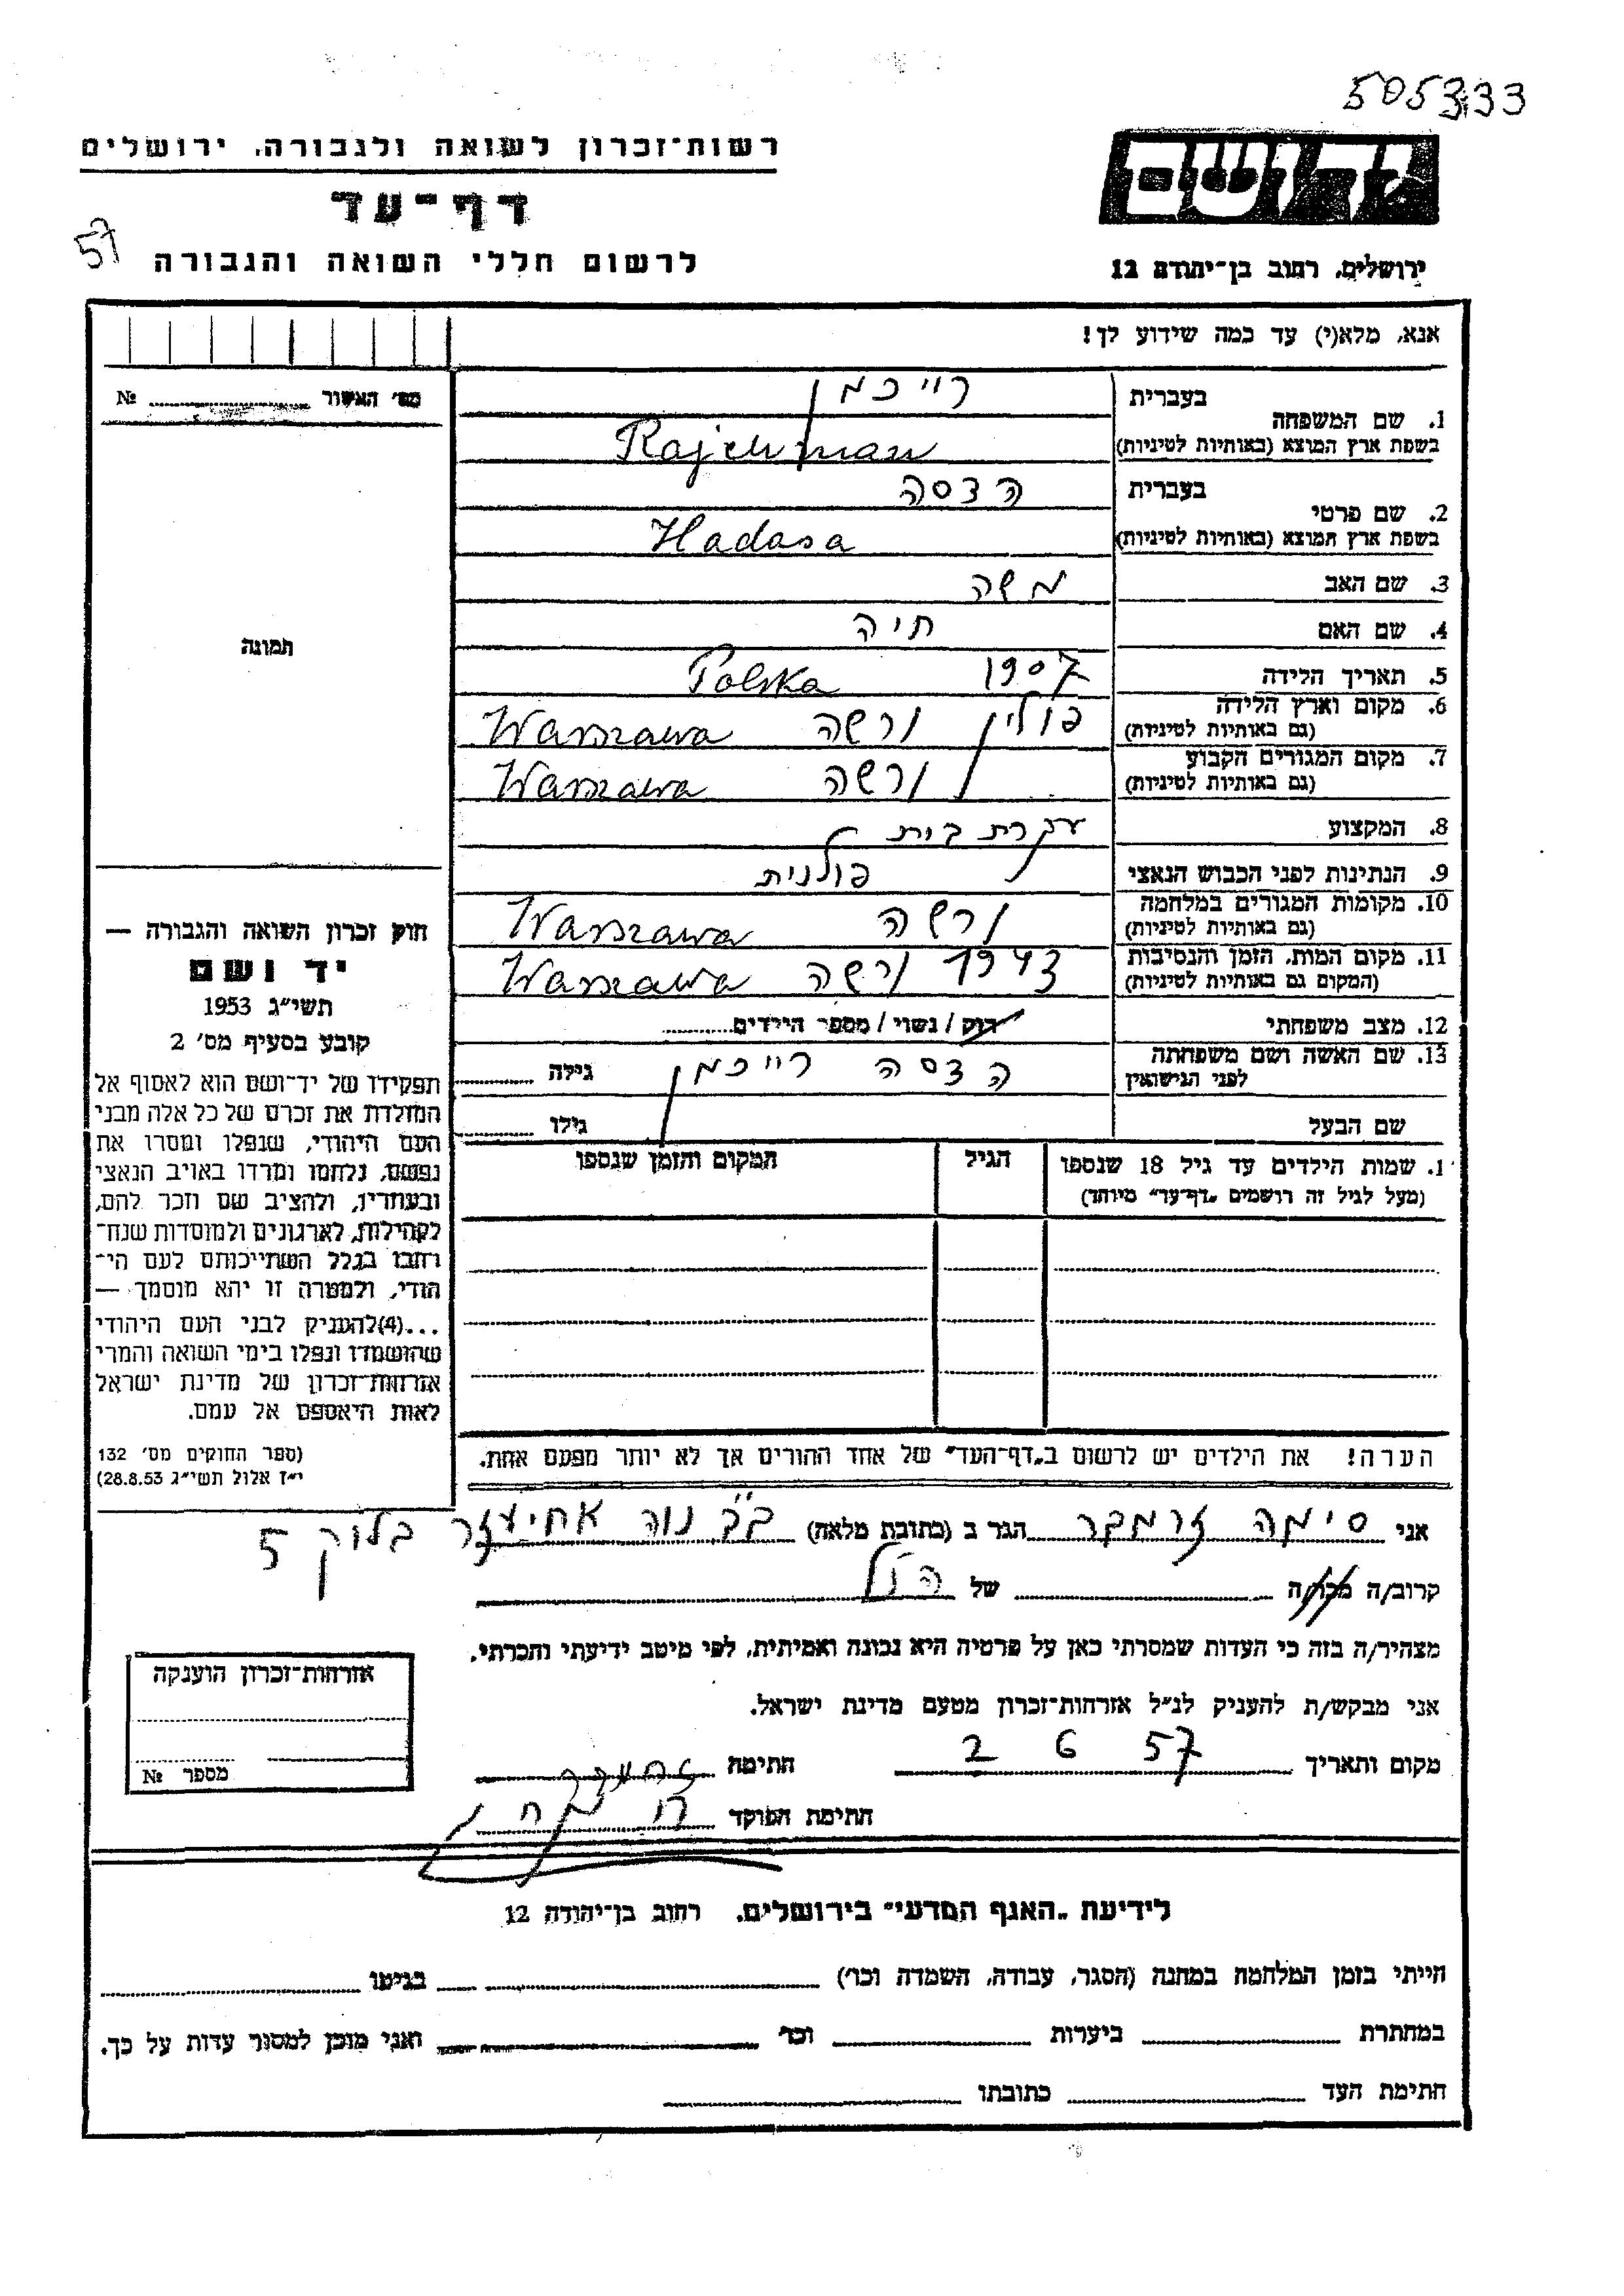 505333
רשות־זכרון לשואה ולגבורה, ירושלים
יד ושם
דף־עד
57
לרשום חללי השואה והגבורה
ירושלים, רחוב בן־יהודה 12
אנא, מלא(י) עד כמה שידוע לך!
מס' האשור № 
1. שם המשפחה בעברית רייכמן
בשפת ארץ המוצא (באותיות לטיניות) Rajchman
2. שם פרטי בעברית הדסה
בשפת ארץ המוצא (באותיות לטיניות) Hadasa
3. שם האב משה
4. שם האם חיה
תמונה
5. תאריך הלידה 1907 Polska
6. מקום וארץ הלידה (גם באותיות לטיניות) פולין ורשה Warszawa
7. מקום המגורים הקבוע (גם באותיות לטיניות) ורשה Warszawa
8. המקצוע עקרת בית
9. הנתינות לפני הכבוש הנאצי פולנית
10. מקומות המגורים במלחמה (גם באותיות לטיניות) ורשה Warszawa
11. מקום המות, הזמן והנסיבות (המקום גם באותיות לטיניות) 1943 ורשה Warszawa
12. מצב משפחתי רווק / נשוי / מספר הילדים
13. שם האשה ושם משפחתה לפני הנישואין הדסה רייכמן גילה
שם הבעל גילו
חוק זכרון השואה והגבורה —
יד ושם
תשי"ג 1953
קובע בסעיף מס' 2
תפקידו של יד־ושם הוא לאסוף אל
המולדת את זכרם של כל אלה מבני
העם היהודי, שנפלו ומסרו את
נפשם, נלחמו ומרדו באויב הנאצי
ובעוזריו, ולהציב שם וזכר להם,
לקהילות, לארגונים ולמוסדות שנח־
רבו בגלל השתייכותם לעם הי־
הודי, ולמטרה זו יהא מוסמך —
...(4)להעניק לבני העם היהודי
שהושמדו ונפלו בימי השואה והמרי
אזרחות־זכרון של מדינת ישראל
לאות היאספם אל עמם.
(ספר החוקים מס' 132
י"ז אלול תשי"ג 28.8.53)
1. שמות הילדים עד גיל 18 שנספו הגיל המקום והזמן שנספו
(מעל לגיל זה רושמים „דף־עד" מיוחד)
הערה! את הילדים יש לרשום ב„דף־העד" של אחד ההורים אך לא יותר מפעם אחת.
אני סימה זרמבר הגר ב (כתובת מלאה) ב"ב נוה אחיעזר בלוק 5
קרוב/ה מכר/ה של הנ"ל
מצהיר/ה בזה כי העדות שמסרתי כאן על פרטיה היא נכונה ואמיתית, לפי מיטב ידיעתי והכרתי.
אני מבקש/ת להעניק לנ"ל אזרחות־זכרון מטעם מדינת ישראל.
מקום ותאריך 2 6 57 חתימה
חתימת הפוקד
אזרחות־זכרון הוענקה
מספר №
לידיעת „האגף המדעי" בירושלים, רחוב בן־יהודה 12
הייתי בזמן המלחמה במחנה (הסגר, עבודה, השמדה וכו') בגיטו
במחתרת ביערות וכו' ואני מוכן למסור עדות על כך.
חתימת העד כתובתו